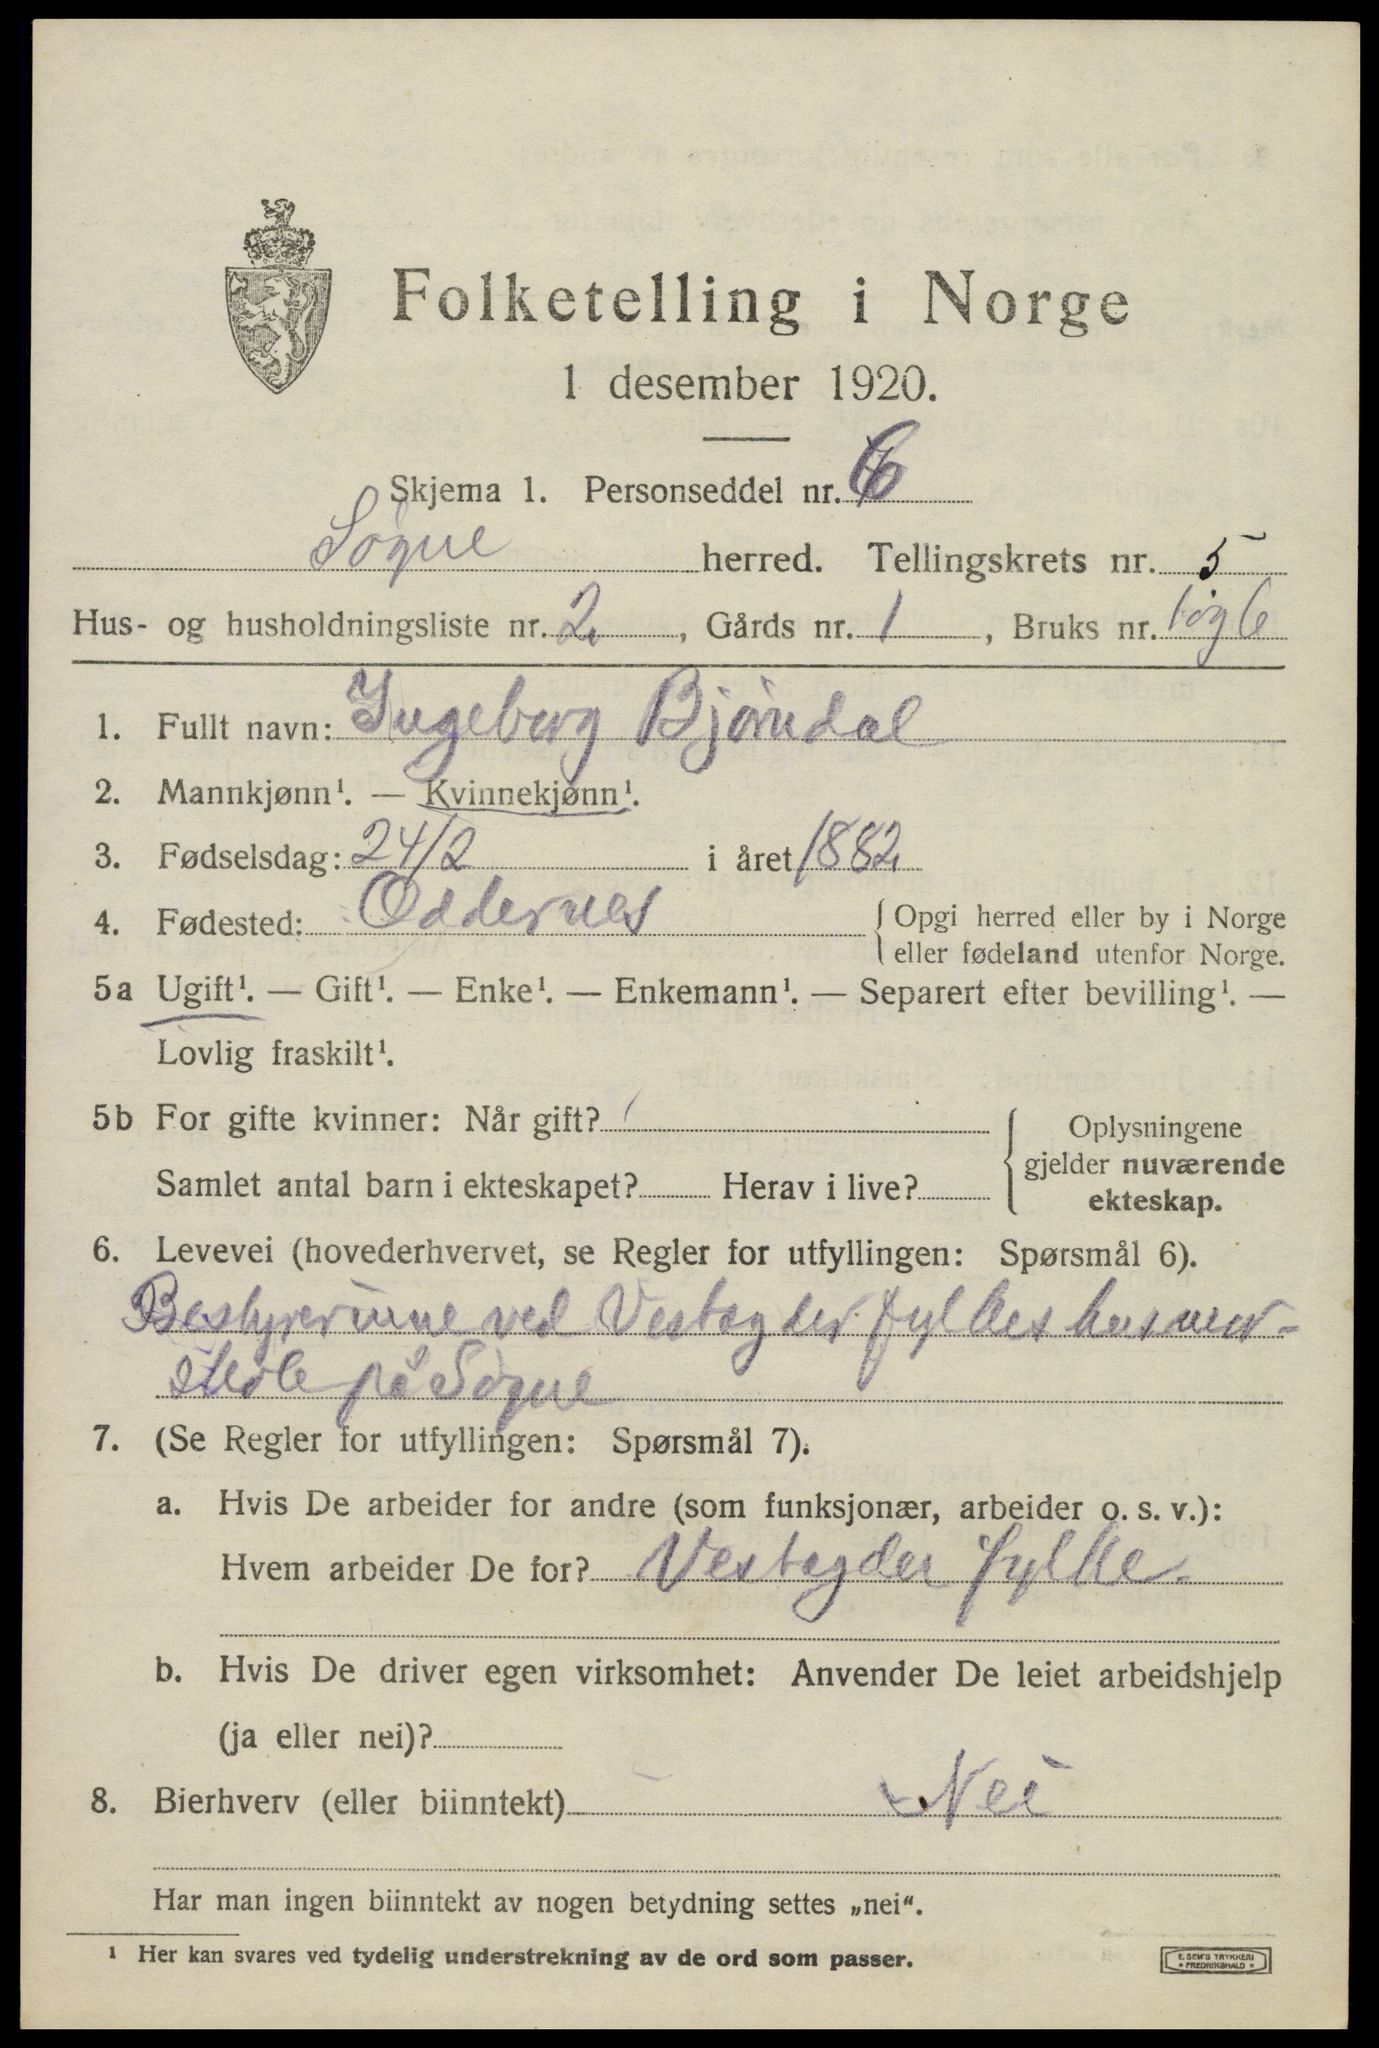 Folketelling i Norge
1 desember 1920.
Skjema 1. Personseddel nr. 6
Søgne herred. Tellingskrets nr. 5
Hus- og husholdningsliste nr. 2, Gårds nr. 1, Bruks nr. 1 og 6
1. Fullt navn: Ingeborg Bjørndal
2. Mannkjønn¹. — Kvinnekjønn¹.
3. Fødselsdag: 24/2 i året 1882
4. Fødested: Oddernes {Opgi herred eller by i Norge
eller fødeland utenfor Norge.
5a Ugift¹. — Gift¹. — Enke¹. — Enkemann¹. — Separert efter bevilling¹. —
Lovlig fraskilt¹.
5b For gifte kvinner: Når gift?
Samlet antal barn i ekteskapet? Herav i live?
{Oplysningene
gjelder nuværende
ekteskap.
6. Levevei (hovederhvervet, se Regler for utfyllingen: Spørsmål 6).
Bestyrerinne ved Vestagder fylkes husmor-
skole på Søgne
7. (Se Regler for utfyllingen: Spørsmål 7).
a. Hvis De arbeider for andre (som funksjonær, arbeider o. s. v.):
Hvem arbeider De for? Vestagder fylke.
b. Hvis De driver egen virksomhet: Anvender De leiet arbeidshjelp
(ja eller nei)?
8. Bierhverv (eller biinntekt) Nei
Har man ingen biinntekt av nogen betydning settes „nei“.
¹ Her kan svares ved tydelig understrekning av de ord som passer.
E. SEM'S TRYKKERI
* FREDRIKSHALD *